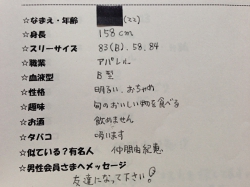 ☆なまえ・年齢 (22)
☆身長 158cm
☆スリーサイズ 83(B). 58. 84
☆職業 アパレル
☆血液型 B型
☆性格 明るい、おちゃめ
☆趣味 旬のおいしい物を食べる
☆お酒 飲めません
☆タバコ 吸います
☆似ている?有名人 仲間由紀恵
☆男性会員さまへメッセージ
友達になって下さい!